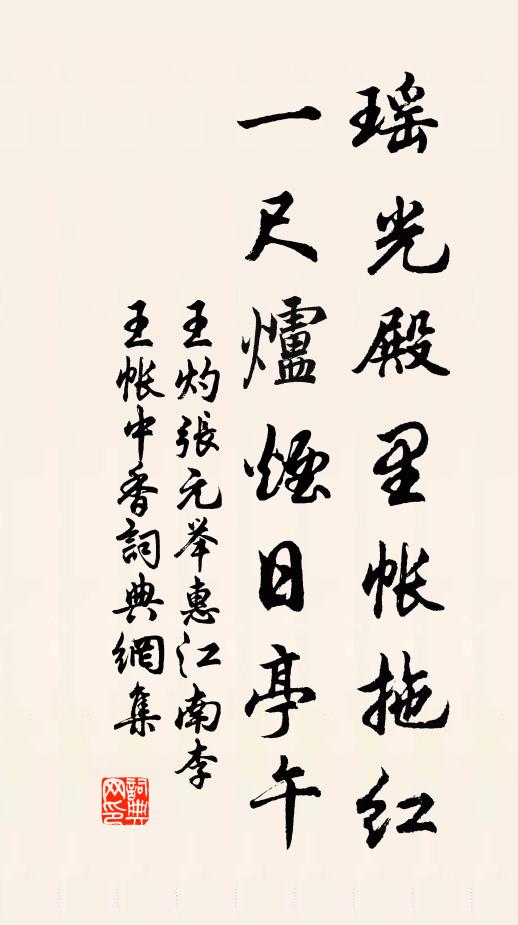 瑶光殿里帐拖红
一尺爐煙日亭午
王灼張元举惠江南李
王帐中香詞典網集
詞典
网印